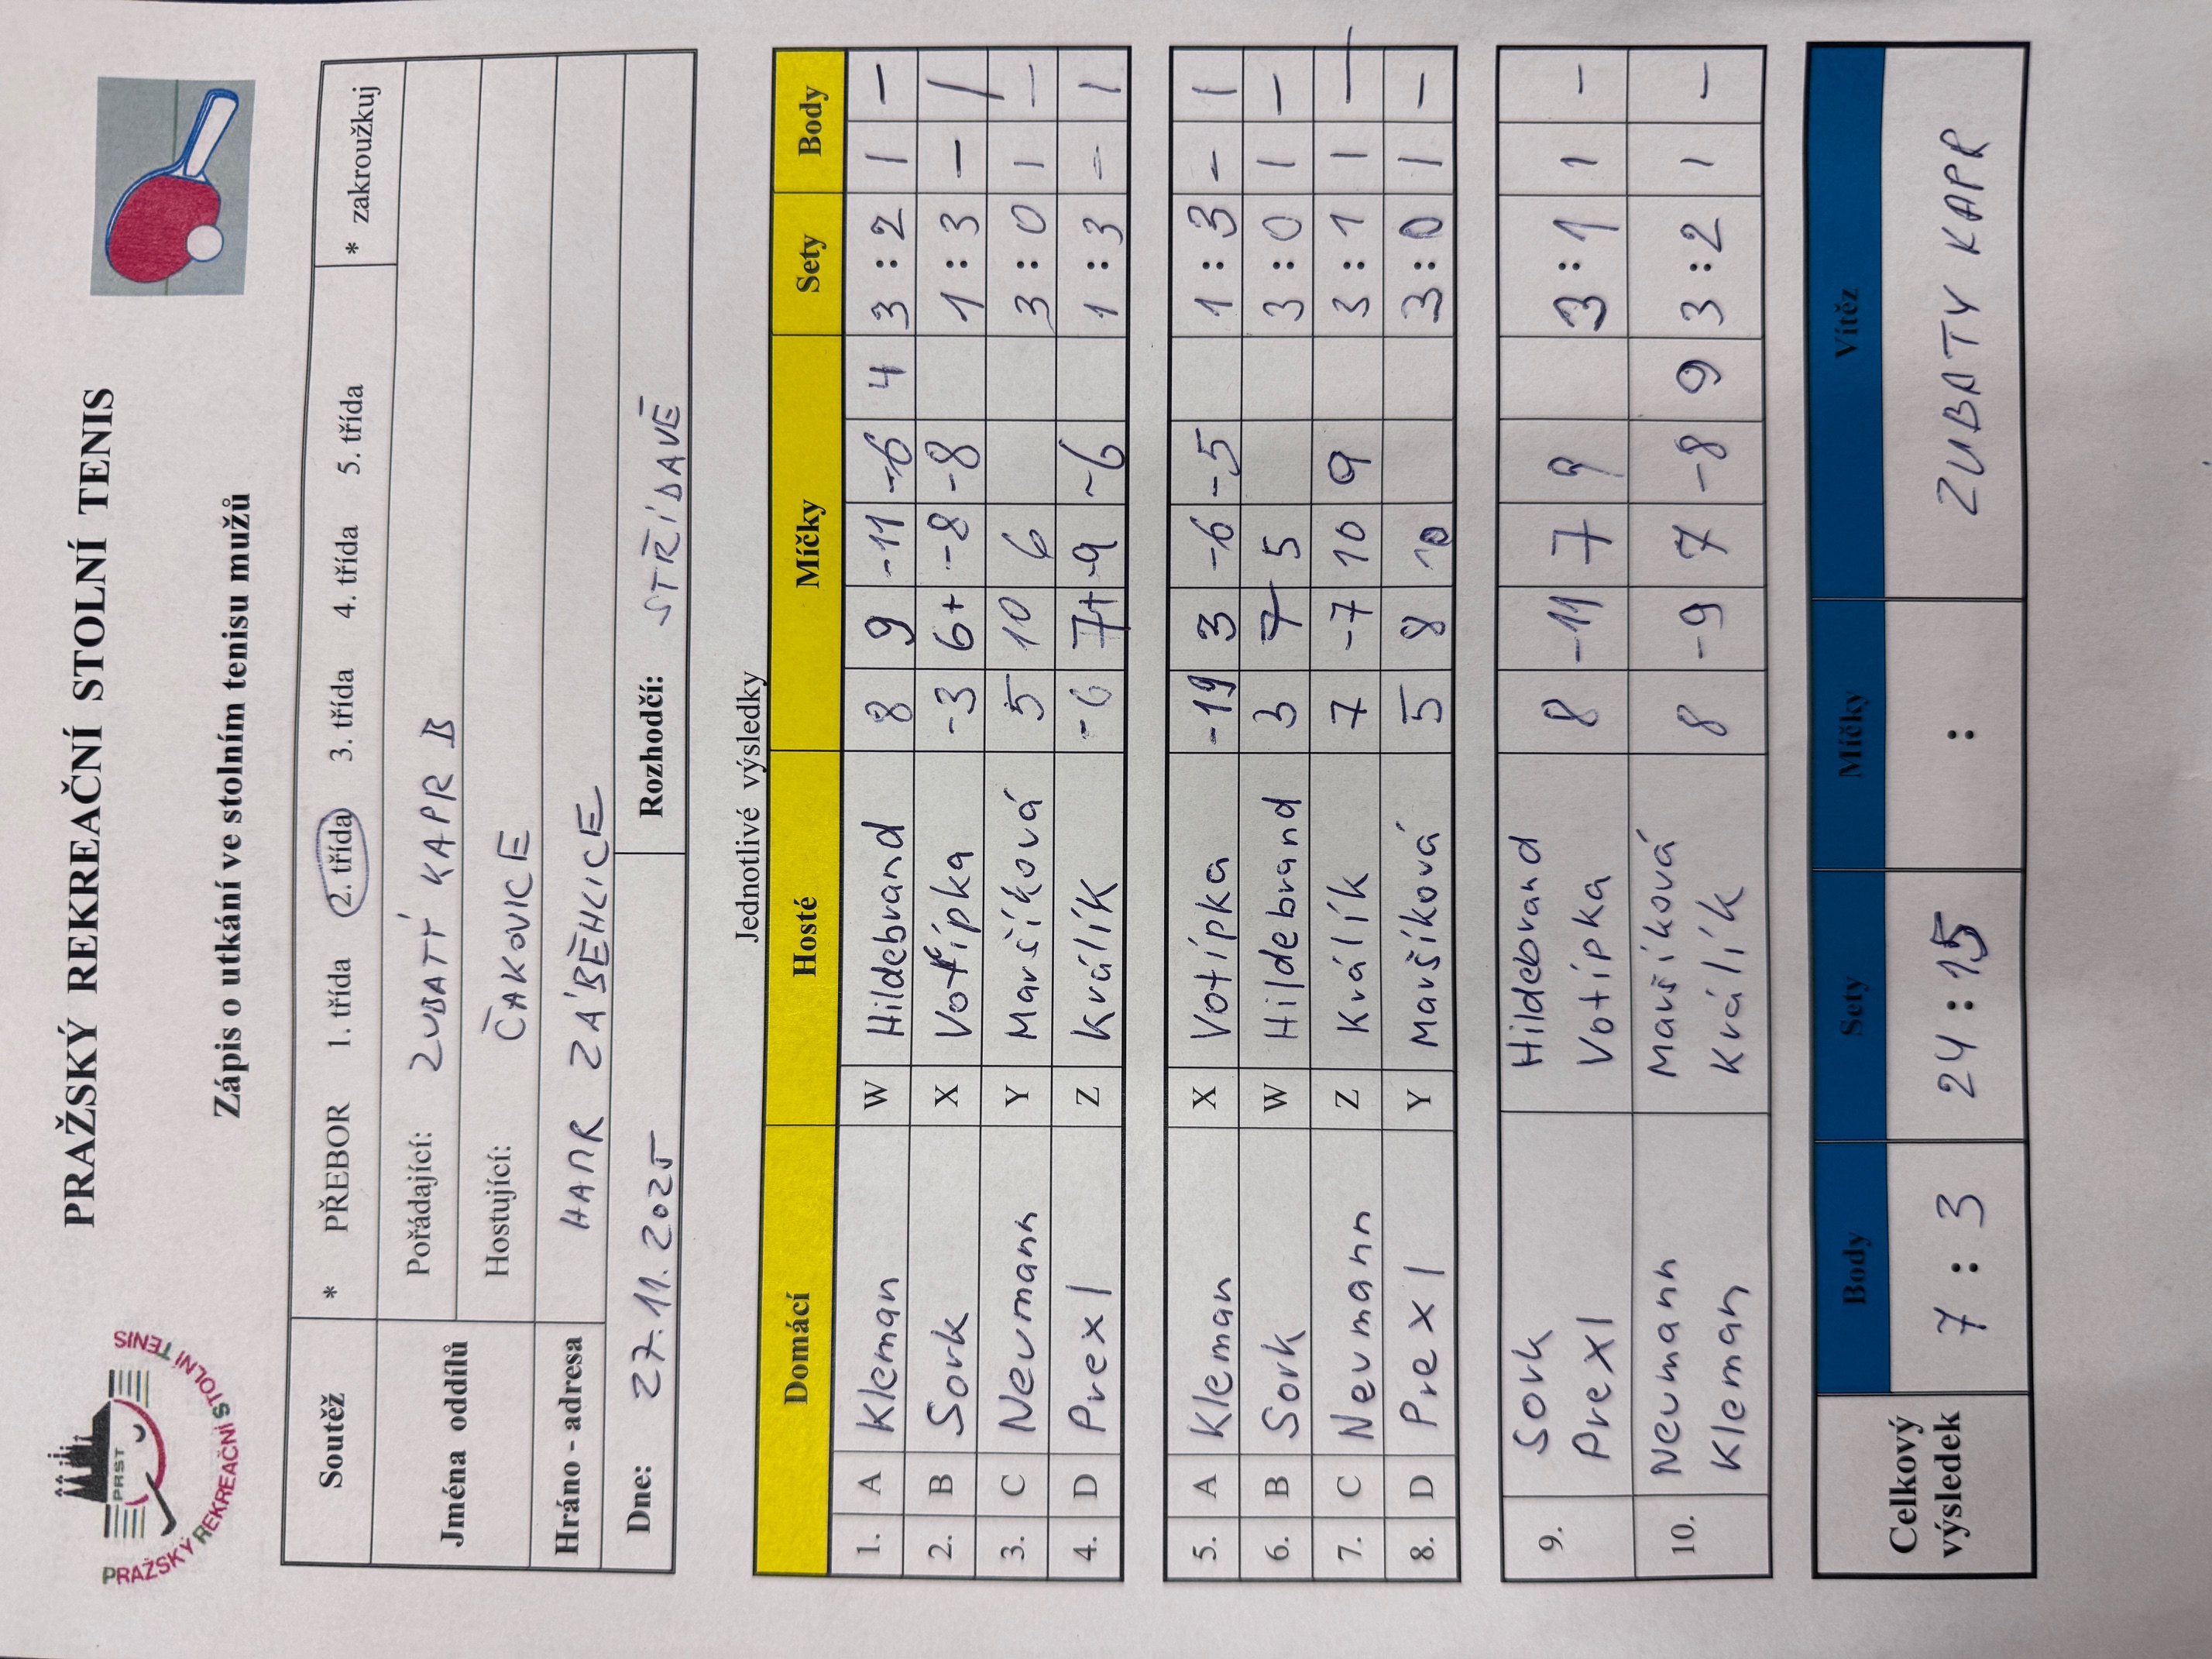 PRAŽSKÝ REKREAČNÍ STOLNÍ TENIS
PRST
PRAŽSKÝ REKREAČNÍ STOLNÍ TENIS
Zápis o utkání ve stolním tenisu mužů
Soutěž * PŘEBOR 1. třída 2. třída 3. třída 4. třída 5. třída * zakroužkuj
Jména oddílů
Pořádající: ZUBATÝ KAPR B
Hostující: ČAKOVICE
Hráno - adresa HAMR ZÁBĚHLICE
Dne: 27.11.2025 Rozhodčí: STŘÍDAVĚ
Jednotlivé výsledky
Domácí Hosté Míčky Sety Body
1. A Kleman W Hildebrand 8 9 -11 -6 4 3 : 2 1 –
2. B Sork X Votípka -3 6+ -8 -8 1 : 3 – 1
3. C Neumann Y Maršíková 5 10 6 3 : 0 1 –
4. D Prexl Z Králík -6 7+ -9 -6 1 : 3 – 1
5. A Kleman X Votípka -19 3 -6 -5 1 : 3 – 1
6. B Sork W Hildebrand 3 7 5 3 : 0 1 –
7. C Neumann Z Králík 7 -7 10 9 3 : 1 1 –
8. D Prexl Y Maršíková 5 8 10 3 : 0 1 –
9. Sork Hildebrand 8 -11 7 9 3 : 1 1 –
Prexl Votípka
10. Neumann Maršíková 8 -9 7 -8 9 3 : 2 1 –
Kleman Králík
Celkový výsledek
Body Sety Míčky Vítěz
7 : 3 24 : 15 : ZUBATY KAPR